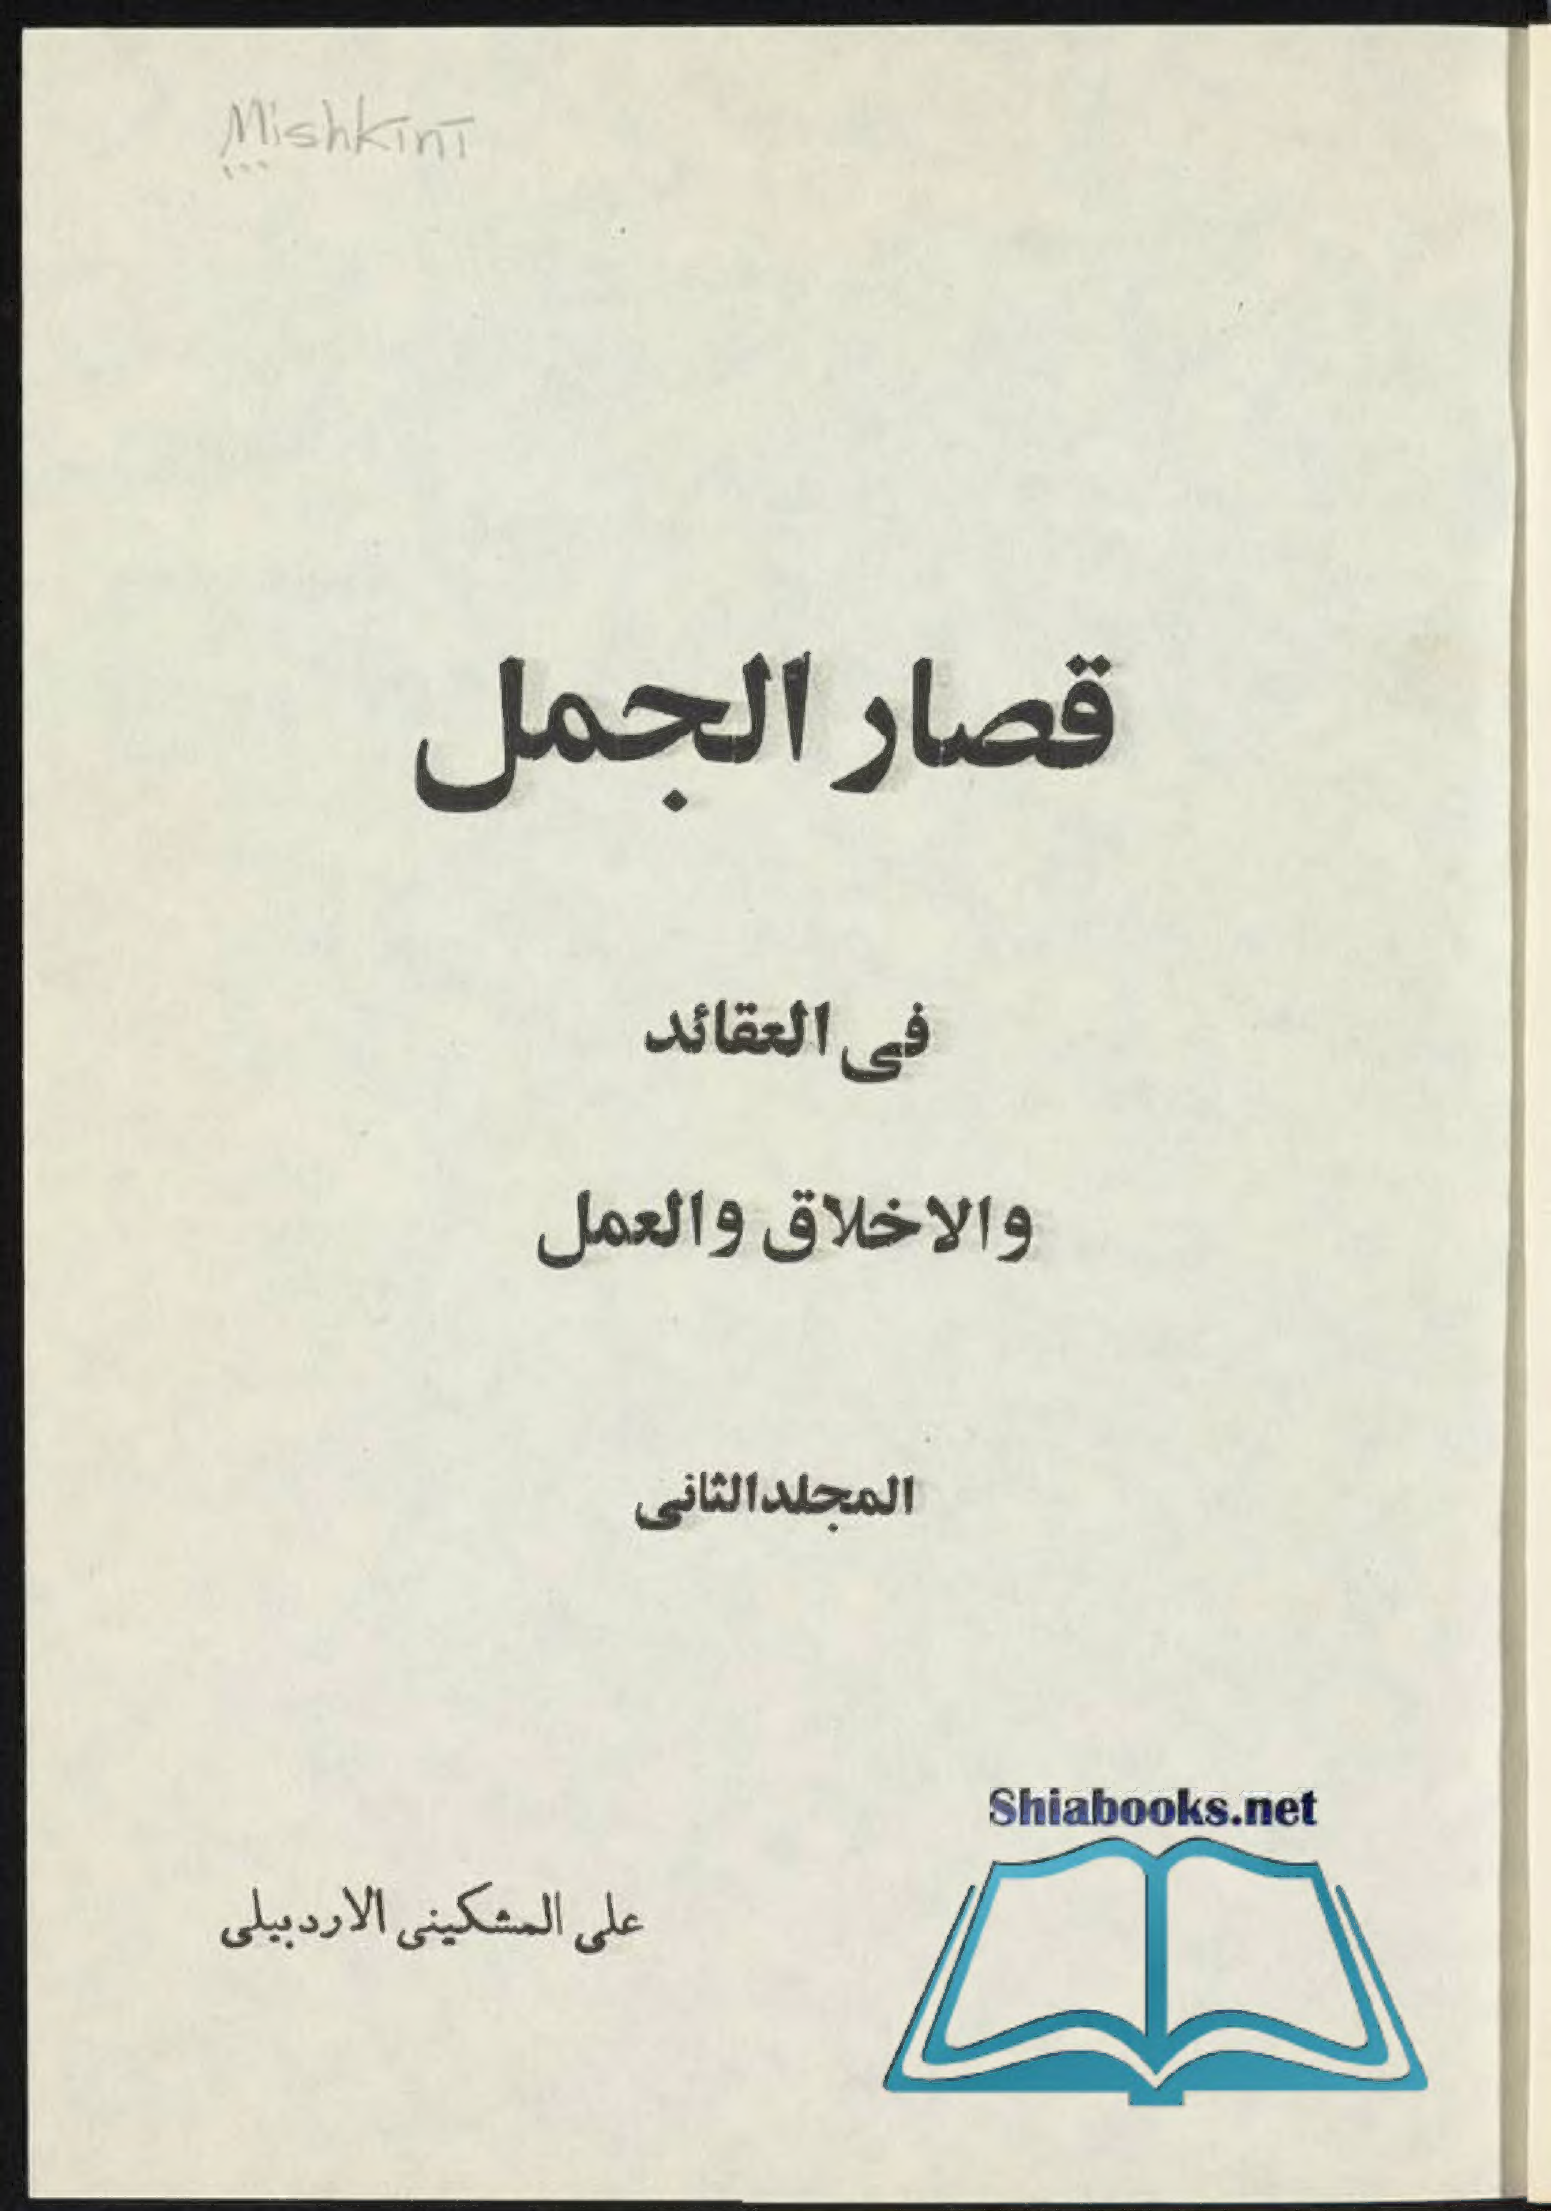 Mishkīnī
قصار الجمل
فى العقائد
والاخلاق والعمل
المجلد الثانى
Shiabooks.net
على المشكينى الاردبيلى